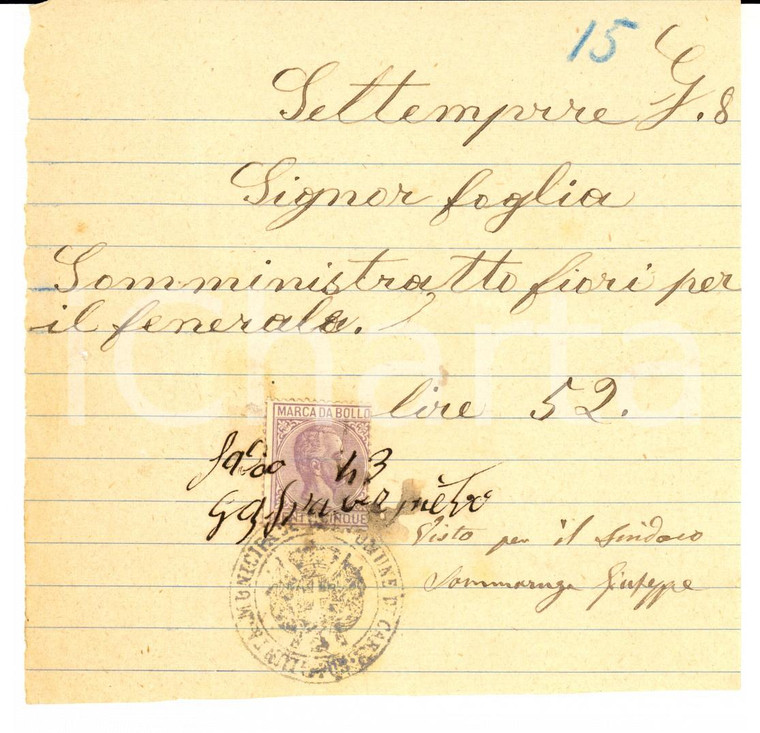 15
Settempre G. 8
Signor foglia
Somministratto fiori per
il fenerale.
lire 52.
MARCA DA BOLLO
CINQUE
43
Visto per il Sindaco
Sommaruga Giuseppe
GIUNTA MUNICIPALE COMUNE DI
iCharta